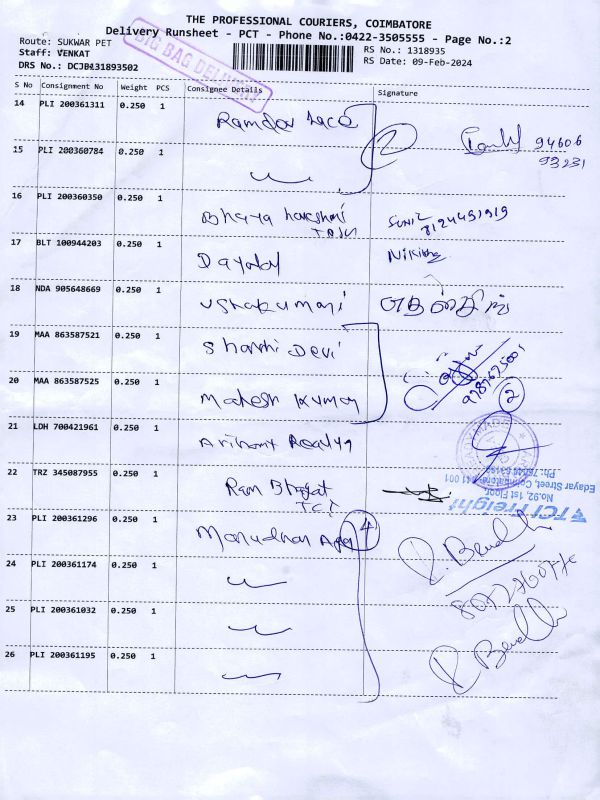 THE PROFESSIONAL COURIERS, COIMBATORE
Delivery Runsheet - PCT - Phone No.:0422-3505555 - Page No.:2
Route: SUKWAR PET
RS No.: 1318935
Staff: VENKAT
RS Date: 09-Feb-2024
DRS No.: DCJB131893502
BIG BAG DELIVERY
S No Consignment No Weight PCS Consignee Details Signature
14 PLI 200361311 0.250 1 Ramdev
94606
15 PLI 200360784 0.250 1
93231
16 PLI 200360350 0.250 1 Bhagya Lakshmi
SUNIL
8124491919
17 BLT 100944203 0.250 1 Dayalal
18 NDA 905648669 0.250 1 Ushakumari
19 MAA 863587521 0.250 1 Shanthi Devi
20 MAA 863587525 0.250 1 Mahesh Kumar
9787675001
2
21 LDH 700421961 0.250 1 Arihant
22 TRZ 345087955 0.250 1 Ram Bhagat
TCI
TCI Freight
No.92, 1st Floor,
Edayar Street, Coimbatore-641 001
23 PLI 200361296 0.250 1 4
24 PLI 200361174 0.250 1
25 PLI 200361032 0.250 1
26 PLI 200361195 0.250 1